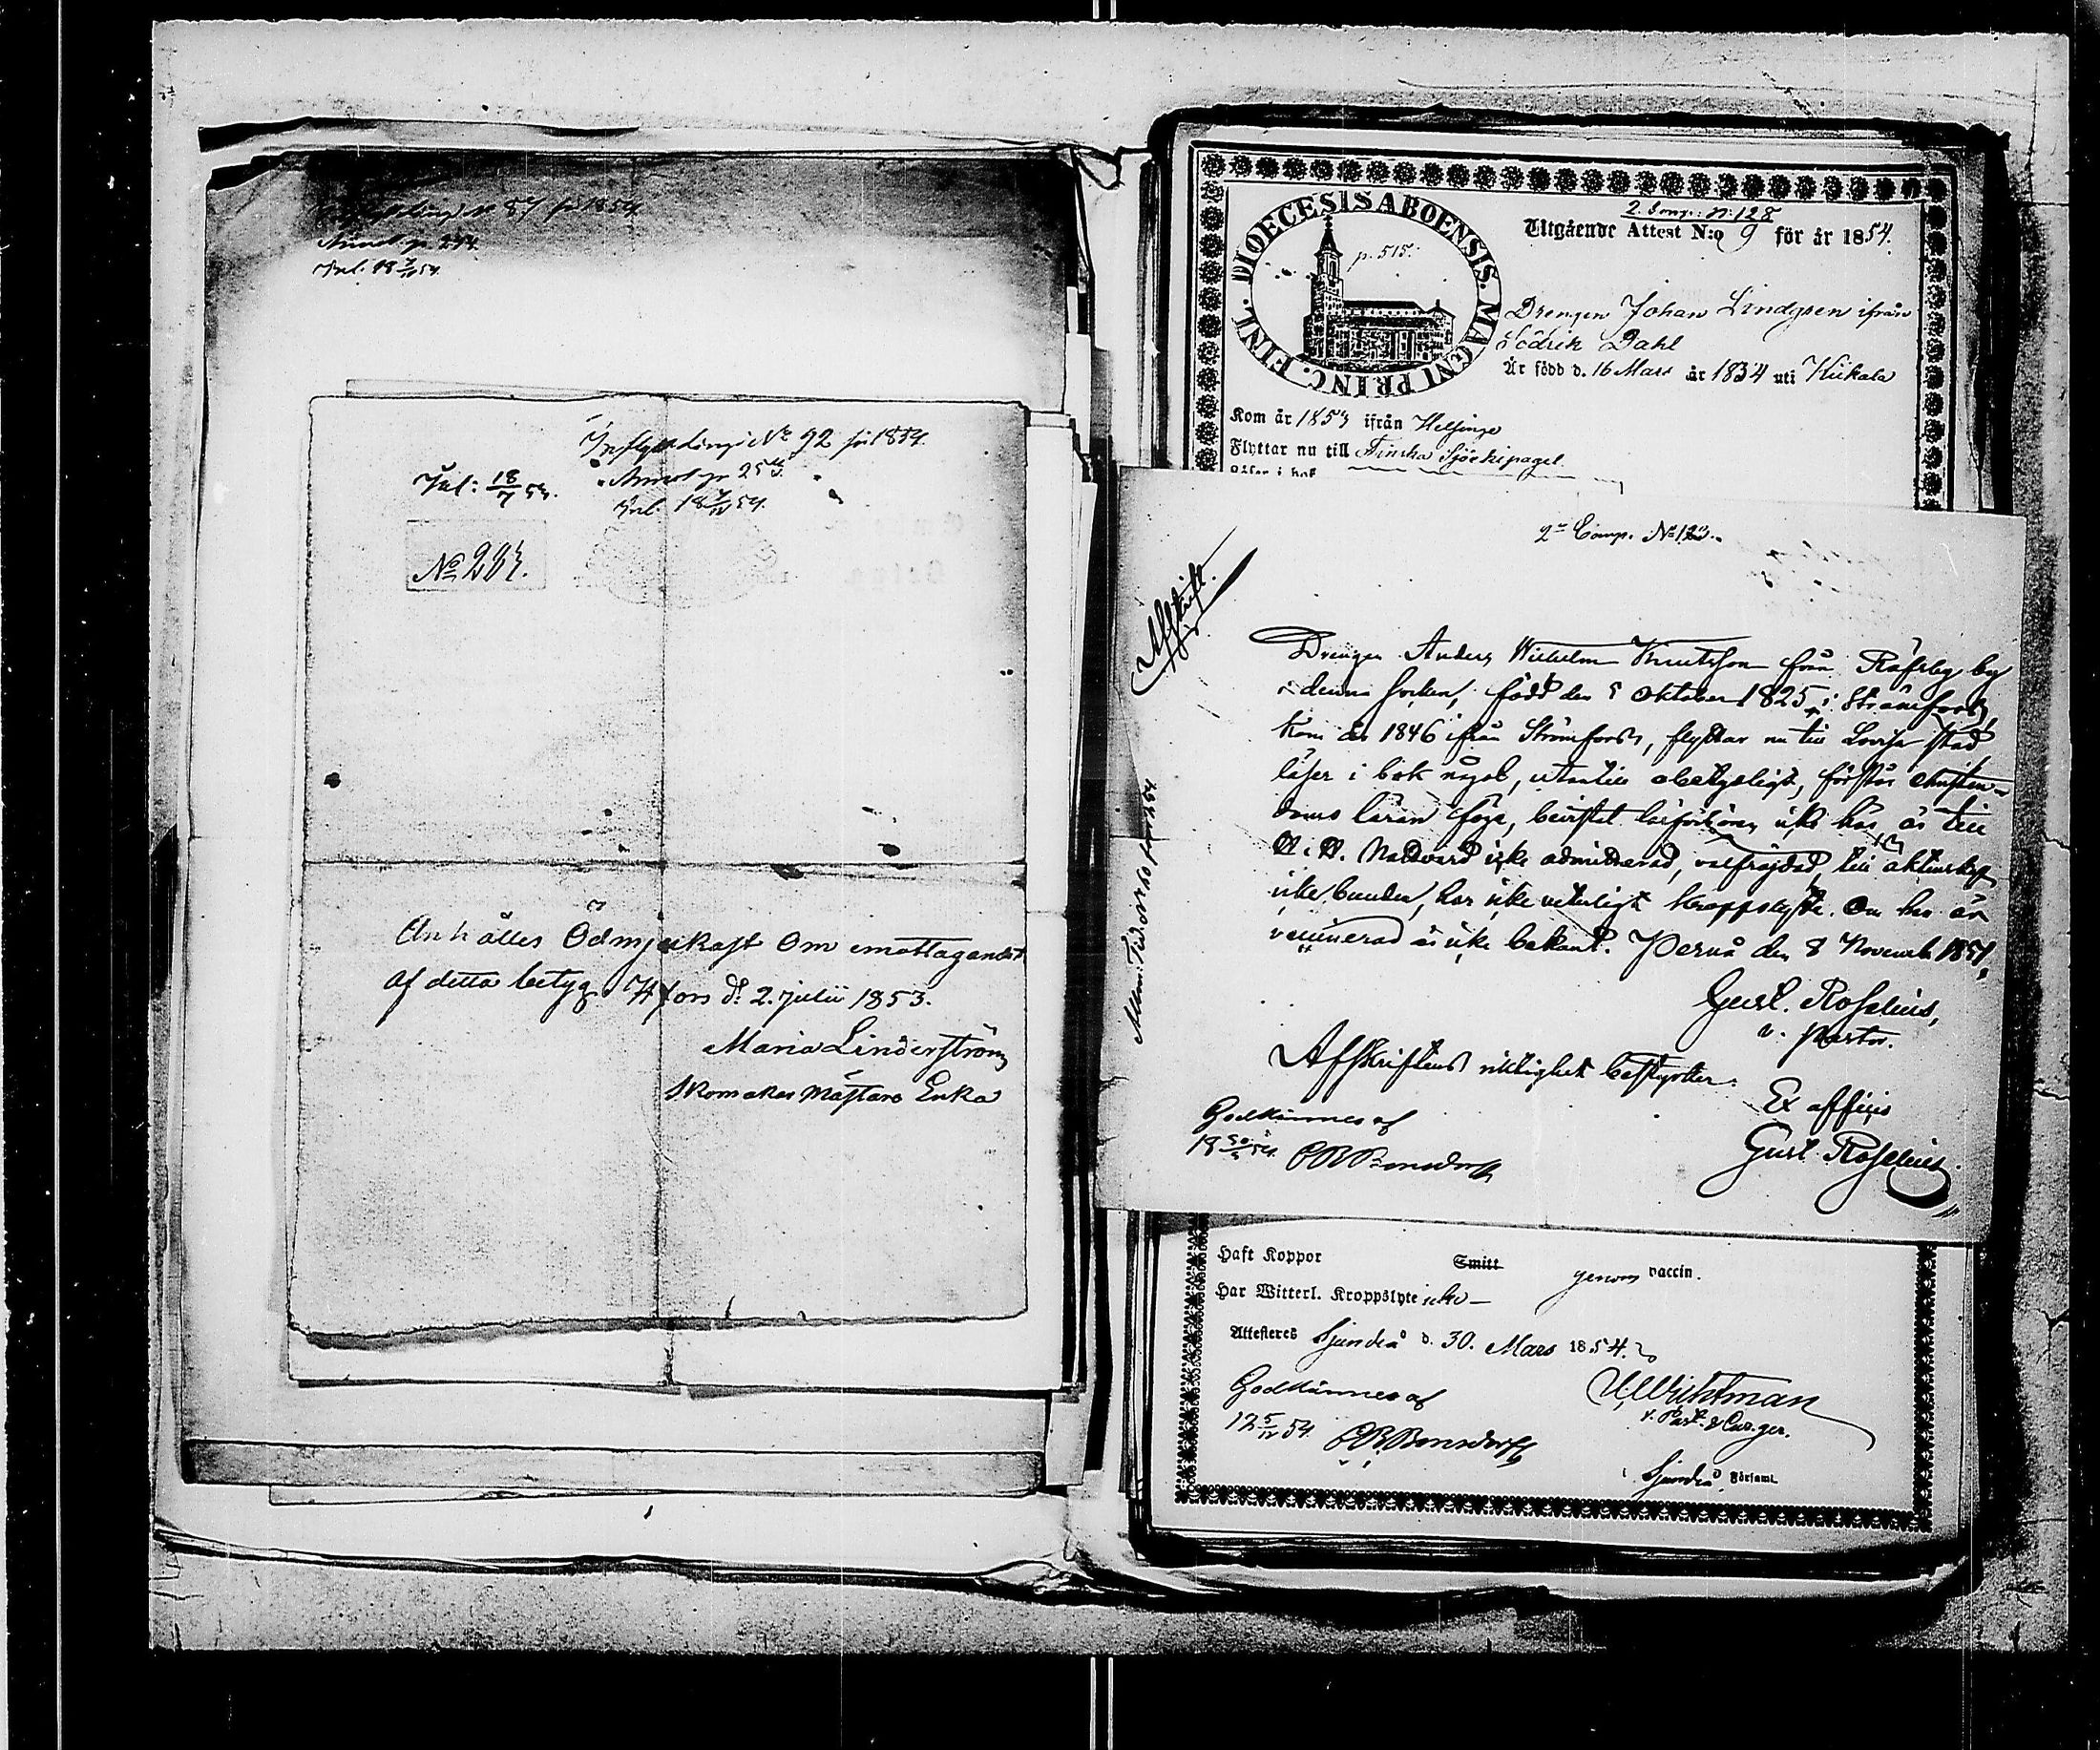 Inflyttnings No 87 för 1854.
Inflyttnings No 92 för 1854.
Inl: 18/7 53.
Inl. 18 7/IV 54.
No 283.
Anhålles Ödmjukast Om emottagandet
af detta betyg. H fors d: 2. julii 1853.
Maria Linderström
Skomakar Mästare Enka
DIOECESIS ABOENSIS. MAGNI PRINC. FINL.
p. 515.
2. Comp: N: 128
Utgående Attest N:o 9 för år 1854.
Drengen Johan Lindgren ifrån
Dahl
Är född d. 16 Mars år 1834 uti Kiikala
Kom år 1853 ifrån Helsinge
Flyttar nu till Finska Sjöekipaget
Läser i bok
2n Comp. No 123.
Afskrift.
Drengen Anders Wilhelm Knutsson från Räfsby by
i denna socken, född den 5 Oktober 1825 i Strömfors,
kom år 1846 ifrån Strömfors, flyttar nu till Lovisa stad
läser i bok något, utantill obetydligt, förstår christen-
doms läran föga, bevistat läsförhören icke har, är till
H. H. Nattvard icke admitterad, välfräjdad, till äktenskap
icke bunden, har icke veterligt kroppslyte. Om han är
vaccinerad är icke bekant. Pernå den 8 November 1851,
Gust. Roselius,
v. pastor.
Afskriftens riktighet bestyrker
Ex officio
Gust. Roselius
Godkännes af
Haft Koppor Smitt genom vaccin.
Har Witterl. Kroppslyte icke —
Attesteres Sjundeå d. 30. Mars 1854.
Godkännes af
12 5/IV 54.
v. Past. & Cur. ger.
i Sjundeå Församl.